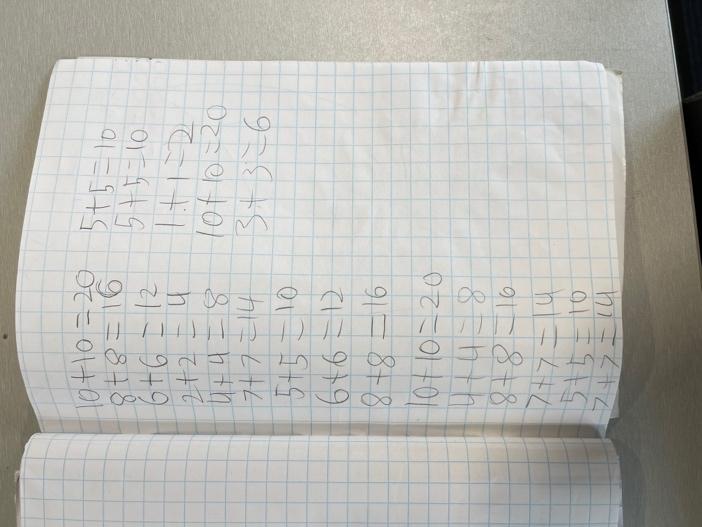 10+10=20
8+8=16
6+6=12
2+2=4
4+4=8
7+7=14
5+5=10
6+6=12
8+8=16
10+10=20
4+4=8
8+8=16
7+7=14
5+5=10
7+7=14
5+5=10
5+5=10
1+1=2
10+10=20
3+3=6